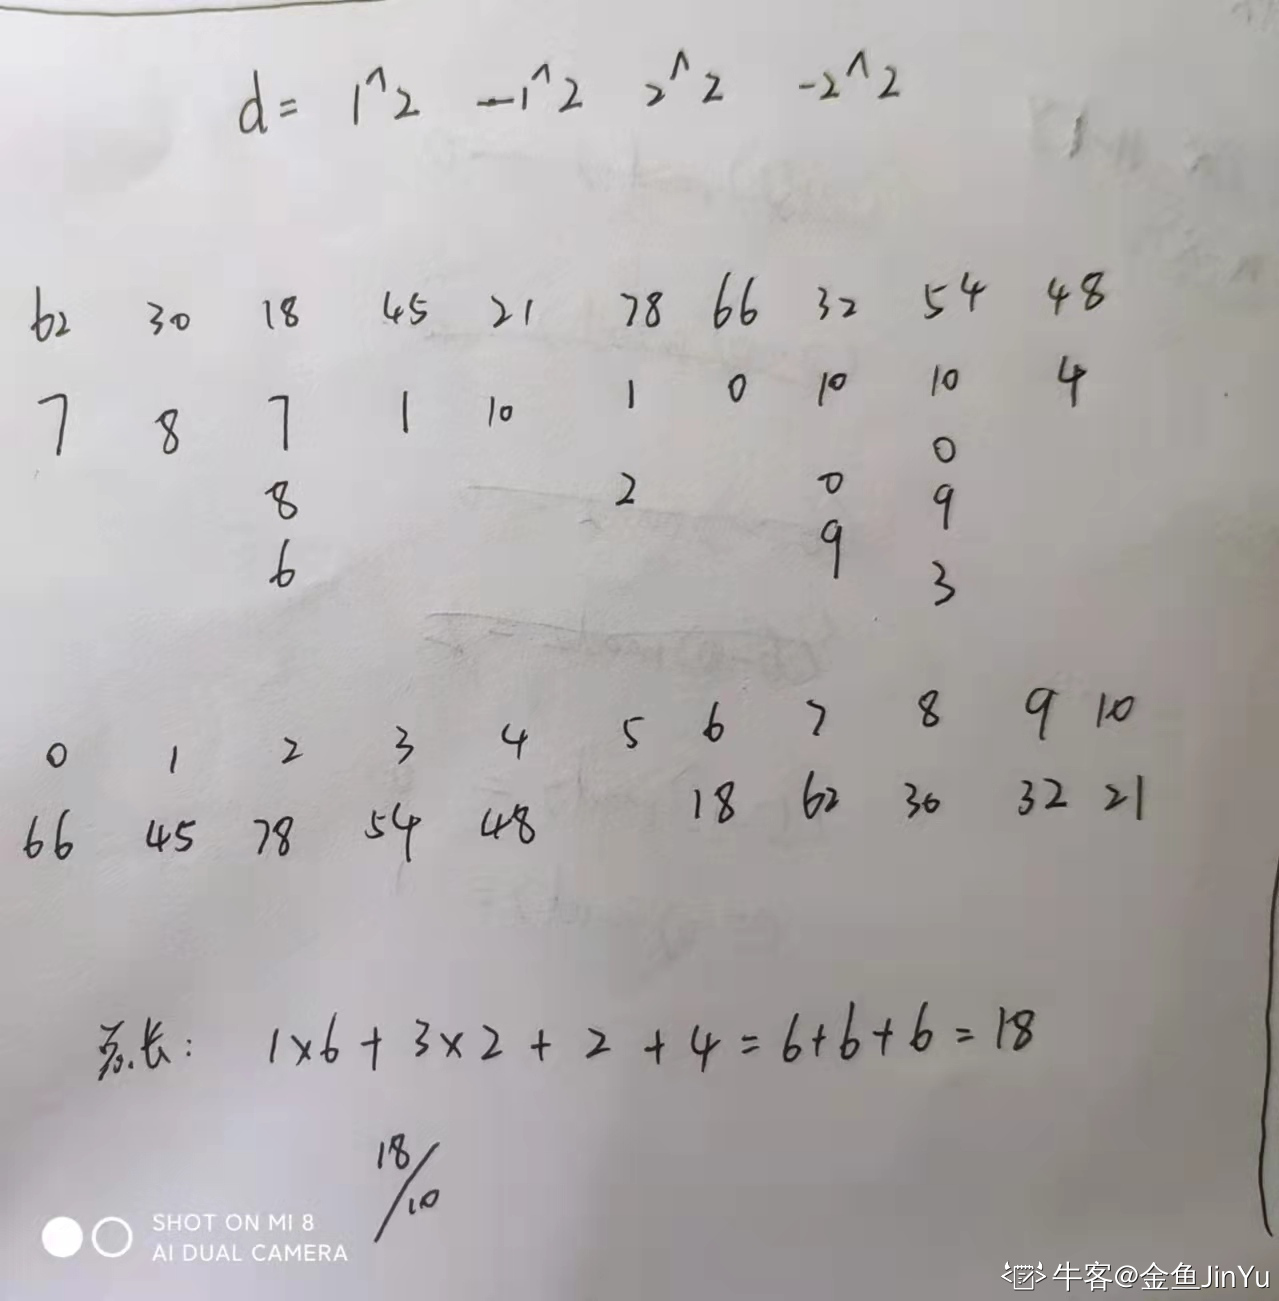 d = 1^2 -1^2 2^2 -2^2
62 30 18 45 21 78 66 32 54 48
7 8 7 1 10 1 0 10 10 4
0
8 2 0 9
6 9 3
0 1 2 3 4 5 6 7 8 9 10
66 45 78 54 48 18 62 30 32 21
总长: 1×6+3×2+2+4=6+6+6=18
18/10
SHOT ON MI 8
AI DUAL CAMERA
牛客@金鱼JinYu